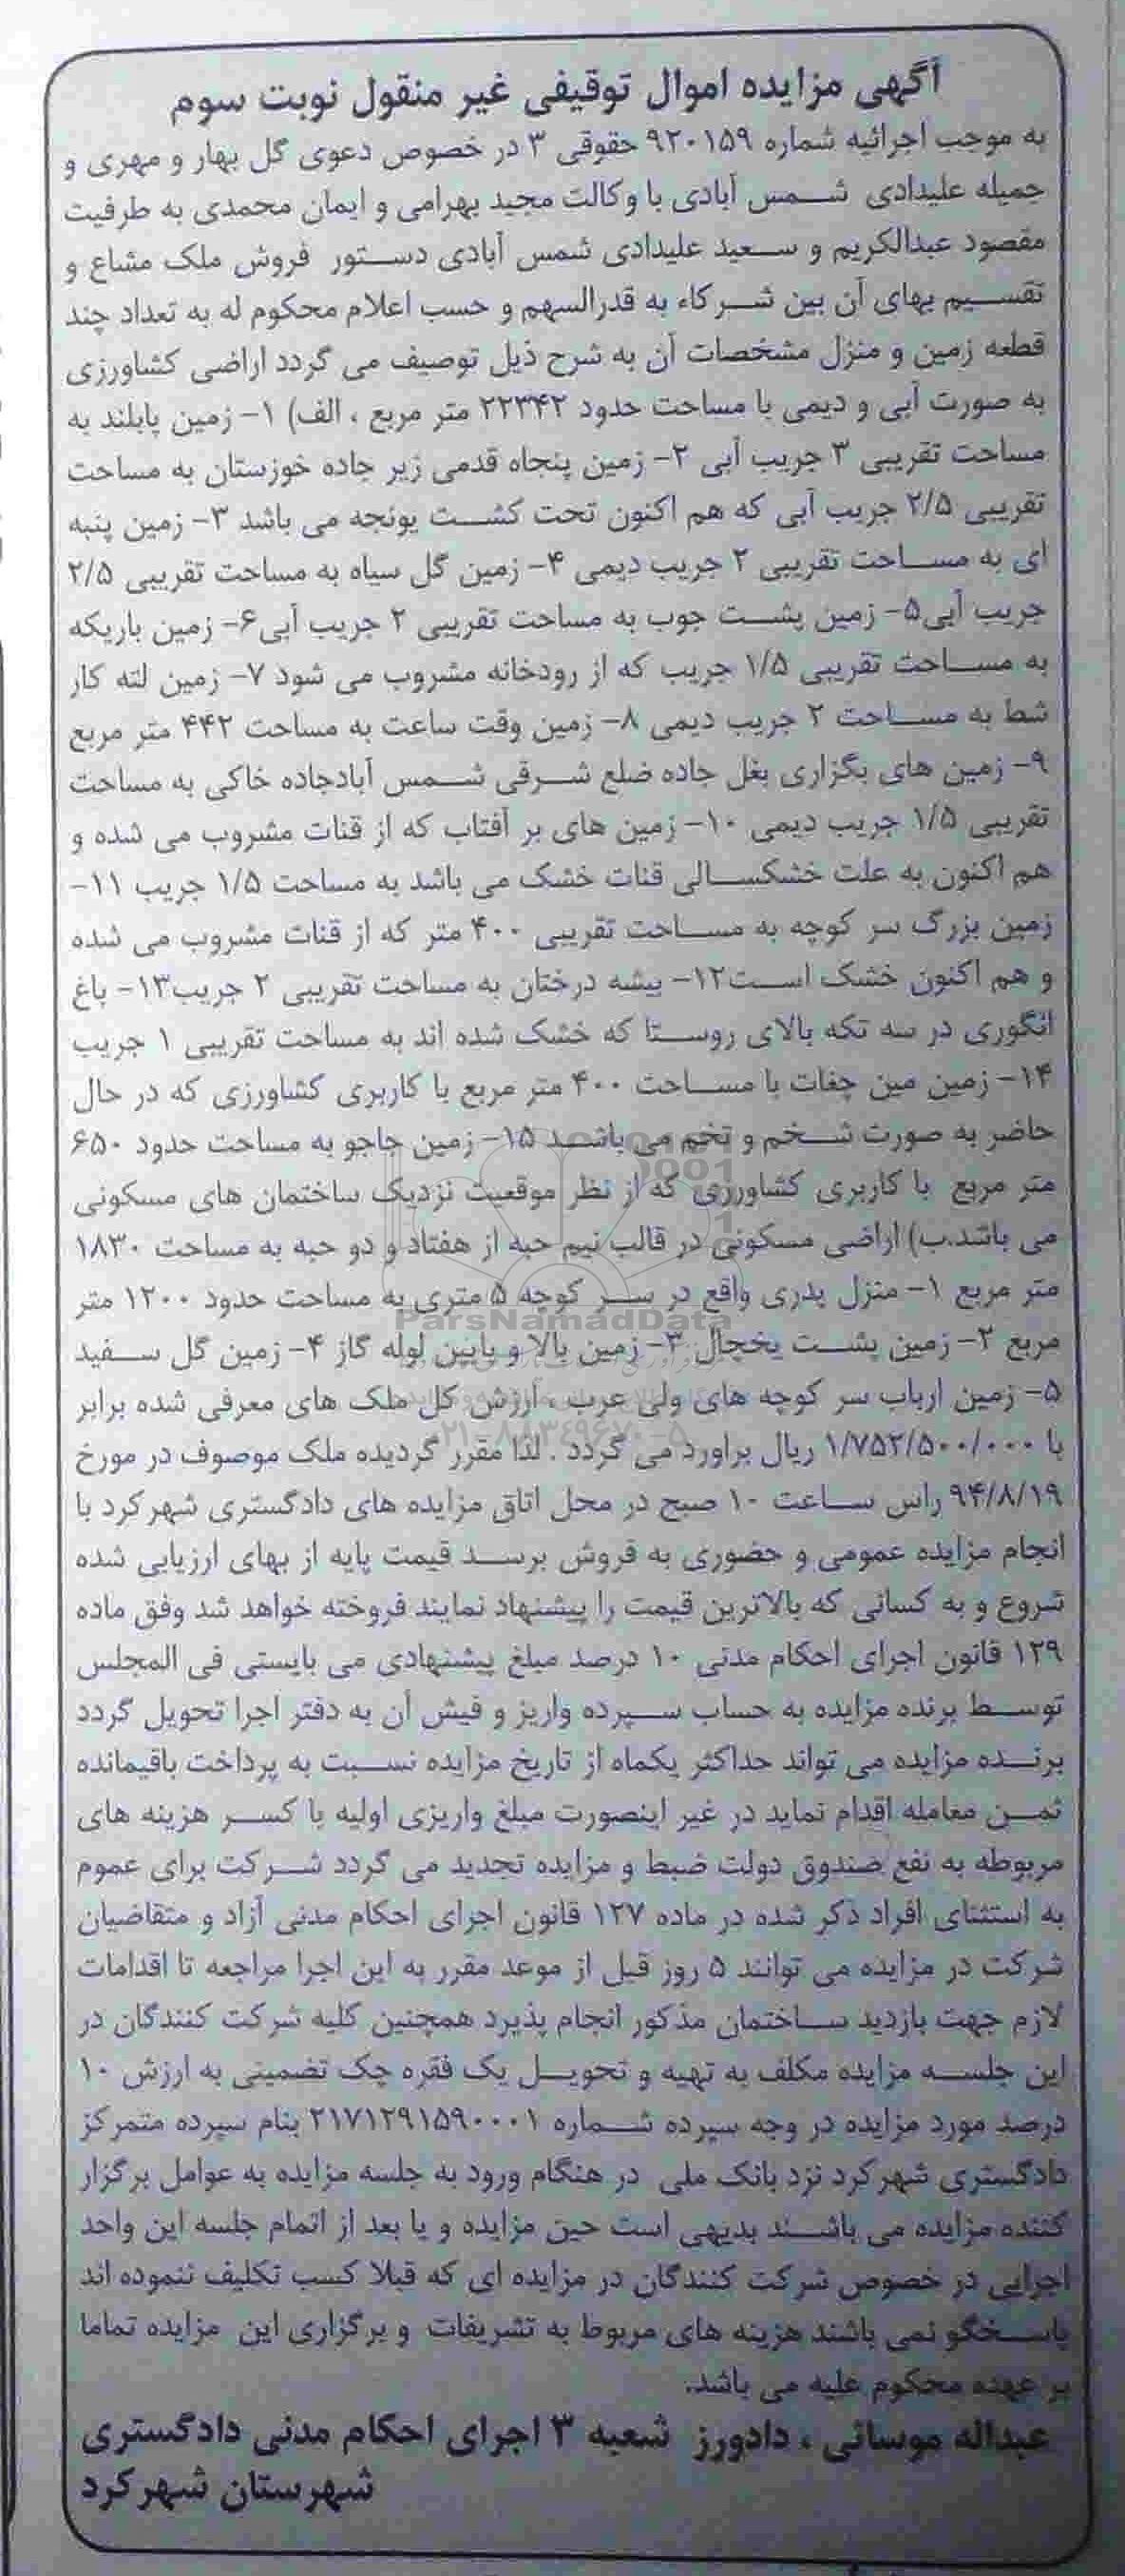 آگهی مزایده اموال توقیفی غیر منقول نوبت سوم
به موجب اجرائیه شماره ۹۲۰۱۵۹ حقوقی ۳ در خصوص دعوی گل بهار و مهری و
جمیله علیدادی شمس آبادی با وکالت مجید بهرامی و ایمان محمدی به طرفیت
مقصود عبدالکریم و سعید علیدادی شمس آبادی دستور فروش ملک مشاع و
تقسیم بهای آن بین شرکاء به قدرالسهم و حسب اعلام محکوم له به تعداد چند
قطعه زمین و منزل مشخصات آن به شرح ذیل توصیف می گردد اراضی کشاورزی
به صورت آبی و دیمی با مساحت حدود ۲۲۳۴۲ متر مربع ، الف) ۱- زمین پابلند به
مساحت تقریبی ۳ جریب آبی ۲- زمین پنجاه قدمی زیر جاده خوزستان به مساحت
تقریبی ۲/۵ جریب آبی که هم اکنون تحت کشت یونجه می باشد ۳- زمین پنبه
ای به مساحت تقریبی ۲ جریب دیمی ۴- زمین گل سیاه به مساحت تقریبی ۲/۵
جریب آبی۵- زمین پشت جوب به مساحت تقریبی ۲ جریب آبی۶- زمین باریکه
به مساحت تقریبی ۱/۵ جریب که از رودخانه مشروب می شود ۷- زمین لته کار
شط به مساحت ۲ جریب دیمی ۸- زمین وقت ساعت به مساحت ۴۴۲ متر مربع
۹- زمین های بگزاری بغل جاده ضلع شرقی شمس آبادجاده خاکی به مساحت
تقریبی ۱/۵ جریب دیمی ۱۰- زمین های بر آفتاب که از قنات مشروب می شده و
هم اکنون به علت خشکسالی قنات خشک می باشد به مساحت ۱/۵ جریب ۱۱-
زمین بزرگ سر کوچه به مساحت تقریبی ۴۰۰ متر که از قنات مشروب می شده
و هم اکنون خشک است۱۲- بیشه درختان به مساحت تقریبی ۲ جریب۱۳- باغ
انگوری در سه تکه بالای روستا که خشک شده اند به مساحت تقریبی ۱ جریب
۱۴- زمین مین چغات با مساحت ۴۰۰ متر مربع با کاربری کشاورزی که در حال
حاضر به صورت شخم و تخم می باشد ۱۵- زمین جاجو به مساحت حدود ۶۵۰
متر مربع با کاربری کشاورزی که از نظر موقعیت نزدیک ساختمان های مسکونی
می باشد.ب) اراضی مسکونی در قالب نیم حبه از هفتاد و دو حبه به مساحت ۱۸۳۰
متر مربع ۱- منزل پدری واقع در سر کوچه ۵ متری به مساحت حدود ۱۲۰۰ متر
ParsNamadData
مربع ۲- زمین پشت یخچال ۳- زمین بالا و پایین لوله گاز ۴- زمین گل سفید
۵- زمین ارباب سر کوچه های ولی عرب ، ارزش کل ملک های معرفی شده برابر
۰۲۱-۸۸۳۴۹۶۷۰-۵
با ۱/۷۵۲/۵۰۰/۰۰۰ ریال براورد می گردد . لذا مقرر گردیده ملک موصوف در مورخ
۹۴/۸/۱۹ راس ساعت ۱۰ صبح در محل اتاق مزایده های دادگستری شهرکرد با
انجام مزایده عمومی و حضوری به فروش برسد قیمت پایه از بهای ارزیابی شده
شروع و به کسانی که بالاترین قیمت را پیشنهاد نمایند فروخته خواهد شد وفق ماده
۱۲۹ قانون اجرای احکام مدنی ۱۰ درصد مبلغ پیشنهادی می بایستی فی المجلس
توسط برنده مزایده به حساب سپرده واریز و فیش آن به دفتر اجرا تحویل گردد
برنده مزایده می تواند حداکثر یکماه از تاریخ مزایده نسبت به پرداخت باقیمانده
ثمن معامله اقدام نماید در غیر اینصورت مبلغ واریزی اولیه با کسر هزینه های
مربوطه به نفع صندوق دولت ضبط و مزایده تجدید می گردد شرکت برای عموم
به استثنای افراد ذکر شده در ماده ۱۲۷ قانون اجرای احکام مدنی آزاد و متقاضیان
شرکت در مزایده می توانند ۵ روز قبل از موعد مقرر به این اجرا مراجعه تا اقدامات
لازم جهت بازدید ساختمان مذکور انجام پذیرد همچنین کلیه شرکت کنندگان در
این جلسه مزایده مکلف به تهیه و تحویل یک فقره چک تضمینی به ارزش ۱۰
درصد مورد مزایده در وجه سپرده شماره ۲۱۷۱۲۹۱۵۹۰۰۰۱ بنام سپرده متمرکز
دادگستری شهرکرد نزد بانک ملی در هنگام ورود به جلسه مزایده به عوامل برگزار
کننده مزایده می باشند بدیهی است حین مزایده و یا بعد از اتمام جلسه این واحد
اجرایی در خصوص شرکت کنندگان در مزایده ای که قبلا کسب تکلیف ننموده اند
پاسخگو نمی باشند هزینه های مربوط به تشریفات و برگزاری این مزایده تماما
بر عهده محکوم علیه می باشد.
عبداله موسائی ، دادورز شعبه ۳ اجرای احکام مدنی دادگستری
شهرستان شهرکرد